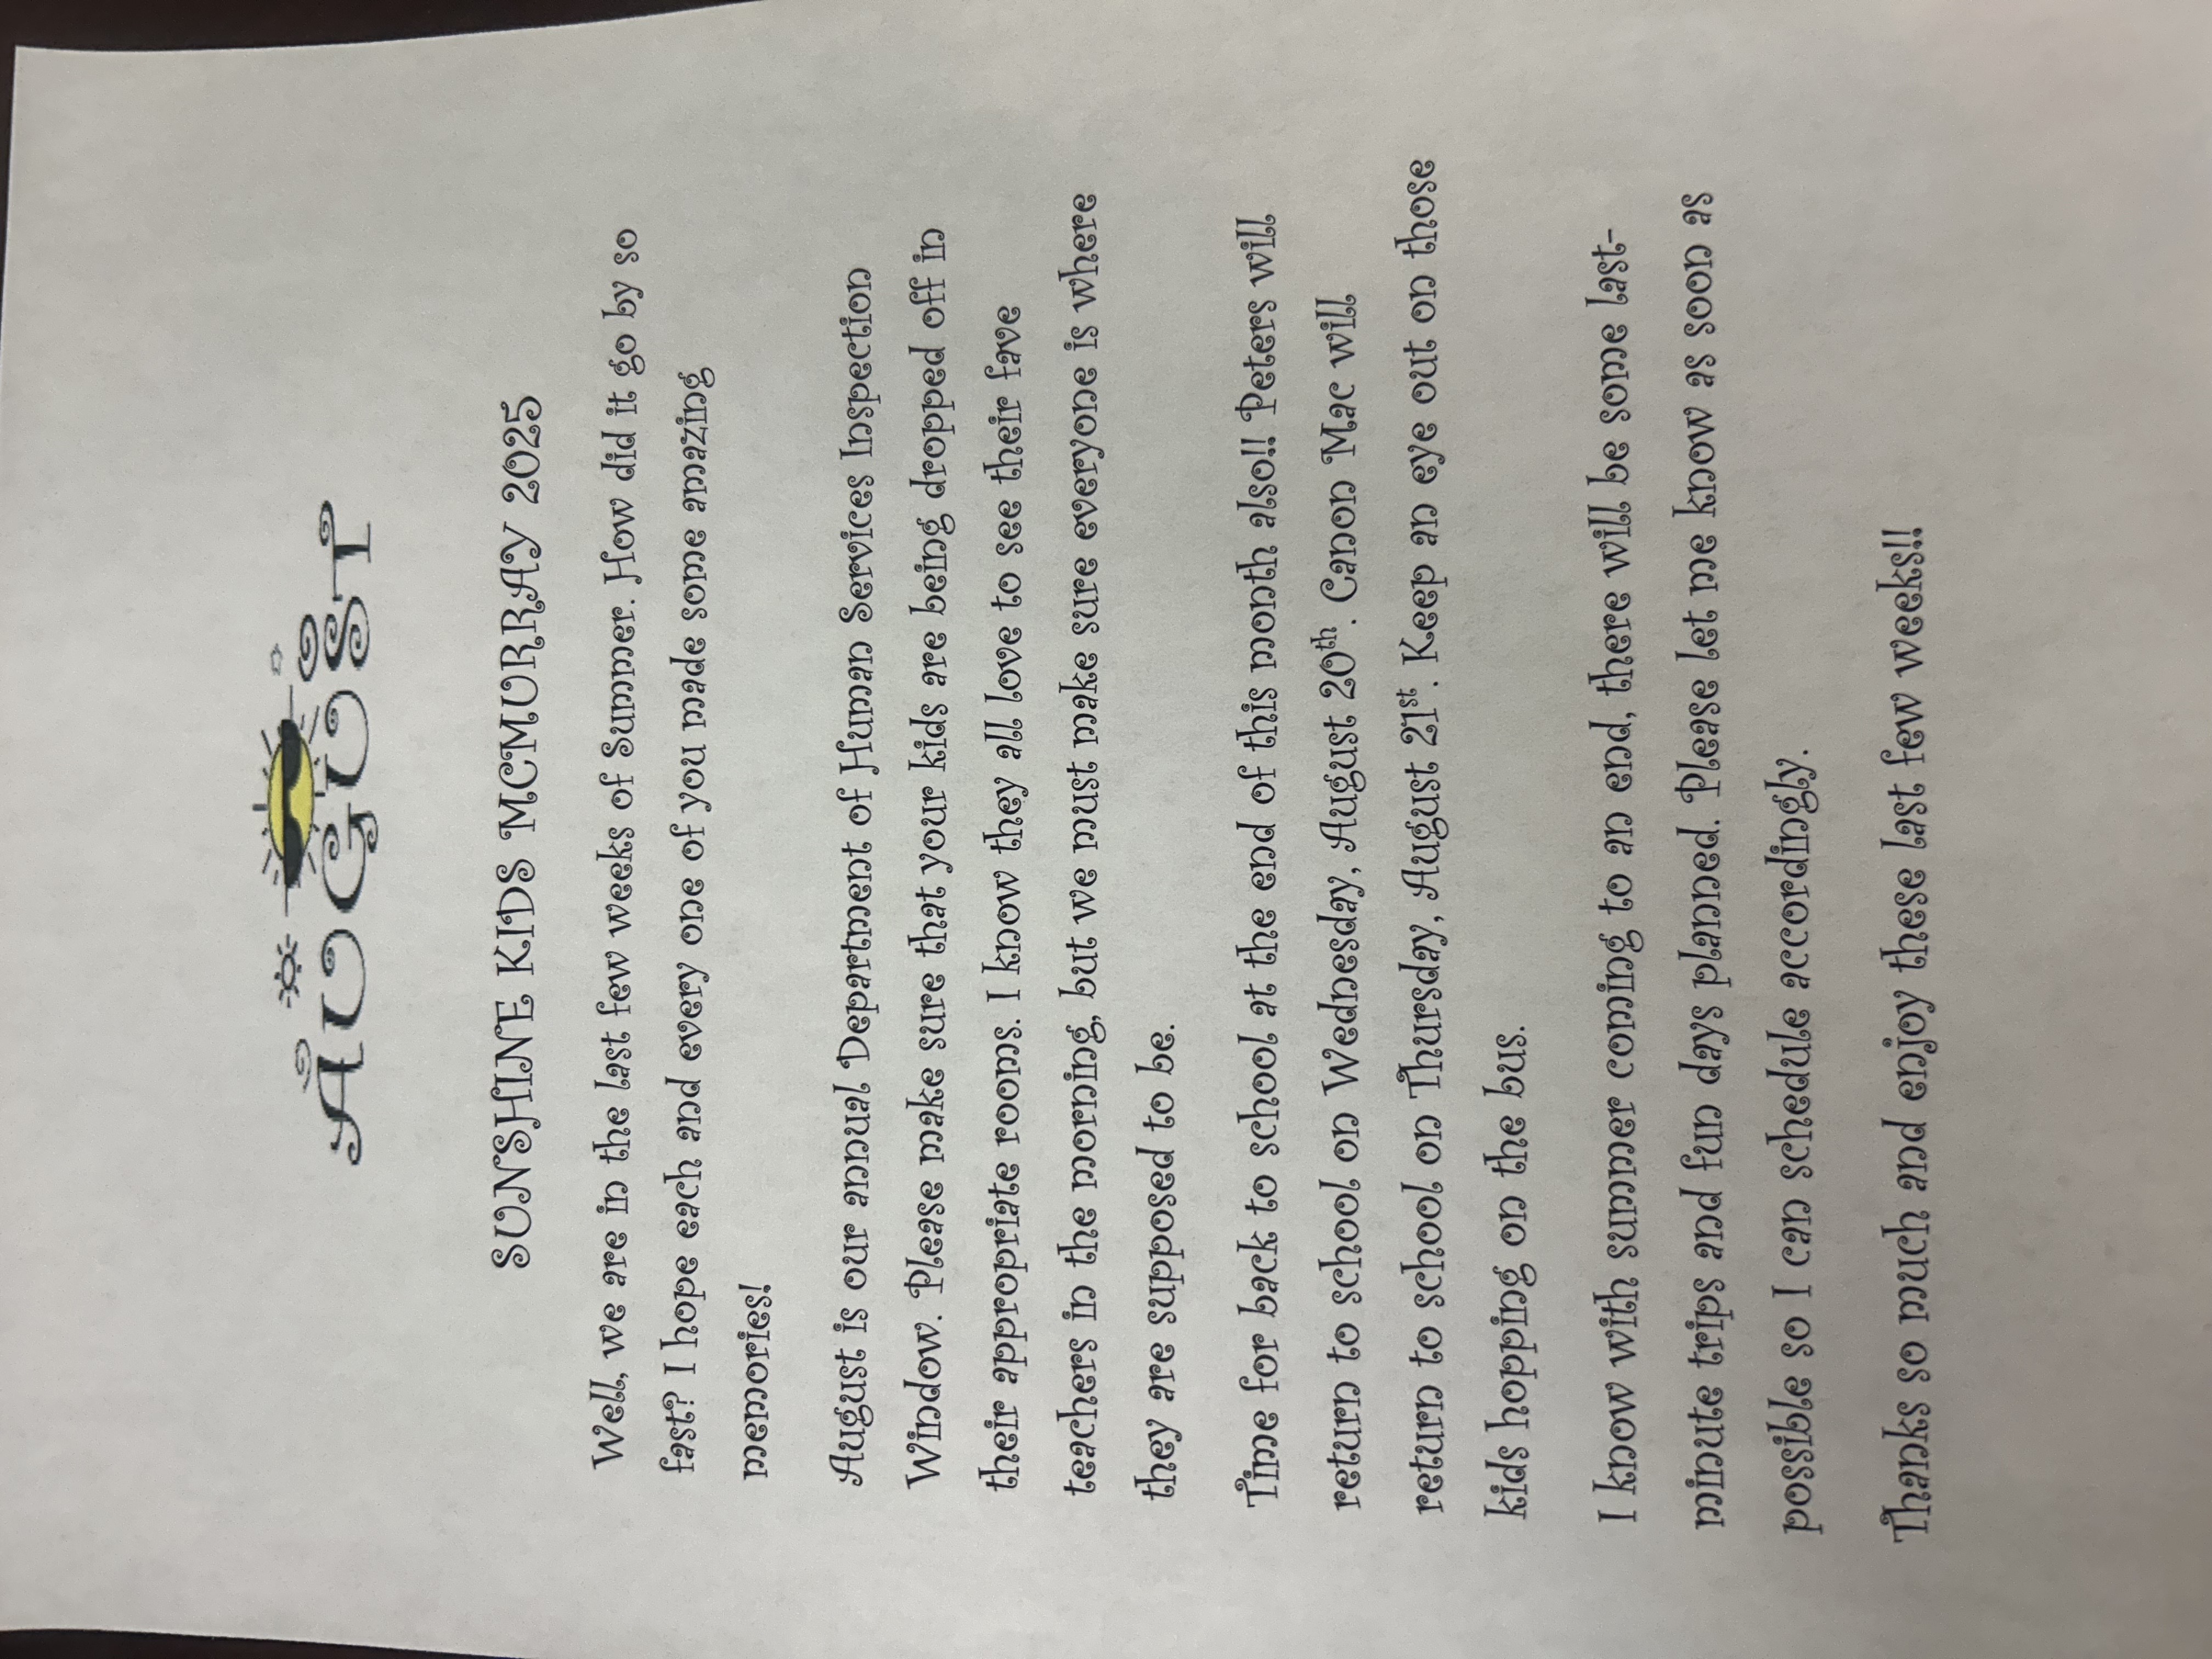 AUGUST
SUNSHINE KIDS MCMURRAY 2025
Well, we are in the last few weeks of Summer. How did it go by so
fast? I hope each and every one of you made some amazing
memories!
August is our annual Department of Human Services Inspection
Window. Please make sure that your kids are being dropped off in
their appropriate rooms. I know they all love to see their fave
teachers in the morning, but we must make sure everyone is where
they are supposed to be.
Time for back to school at the end of this month also!! Peters will
return to school on Wednesday, August 20th. Canon Mac will
return to school on Thursday, August 21st. Keep an eye out on those
kids hopping on the bus.
I know with summer coming to an end, there will be some last-
minute trips and fun days planned. Please let me know as soon as
possible so I can schedule accordingly.
Thanks so much and enjoy these last few weeks!!